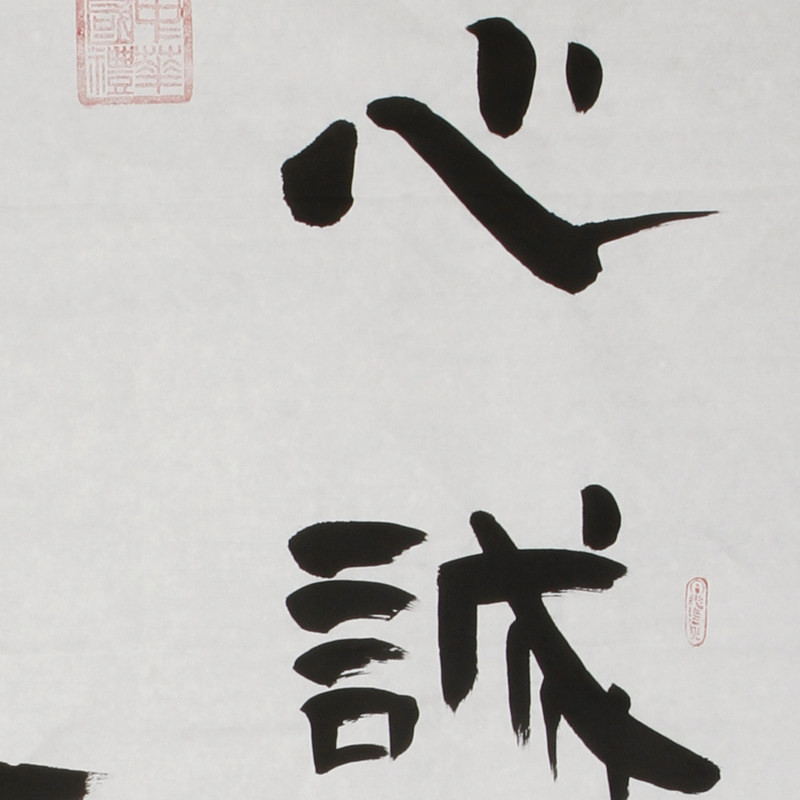 心誠
中華國禮